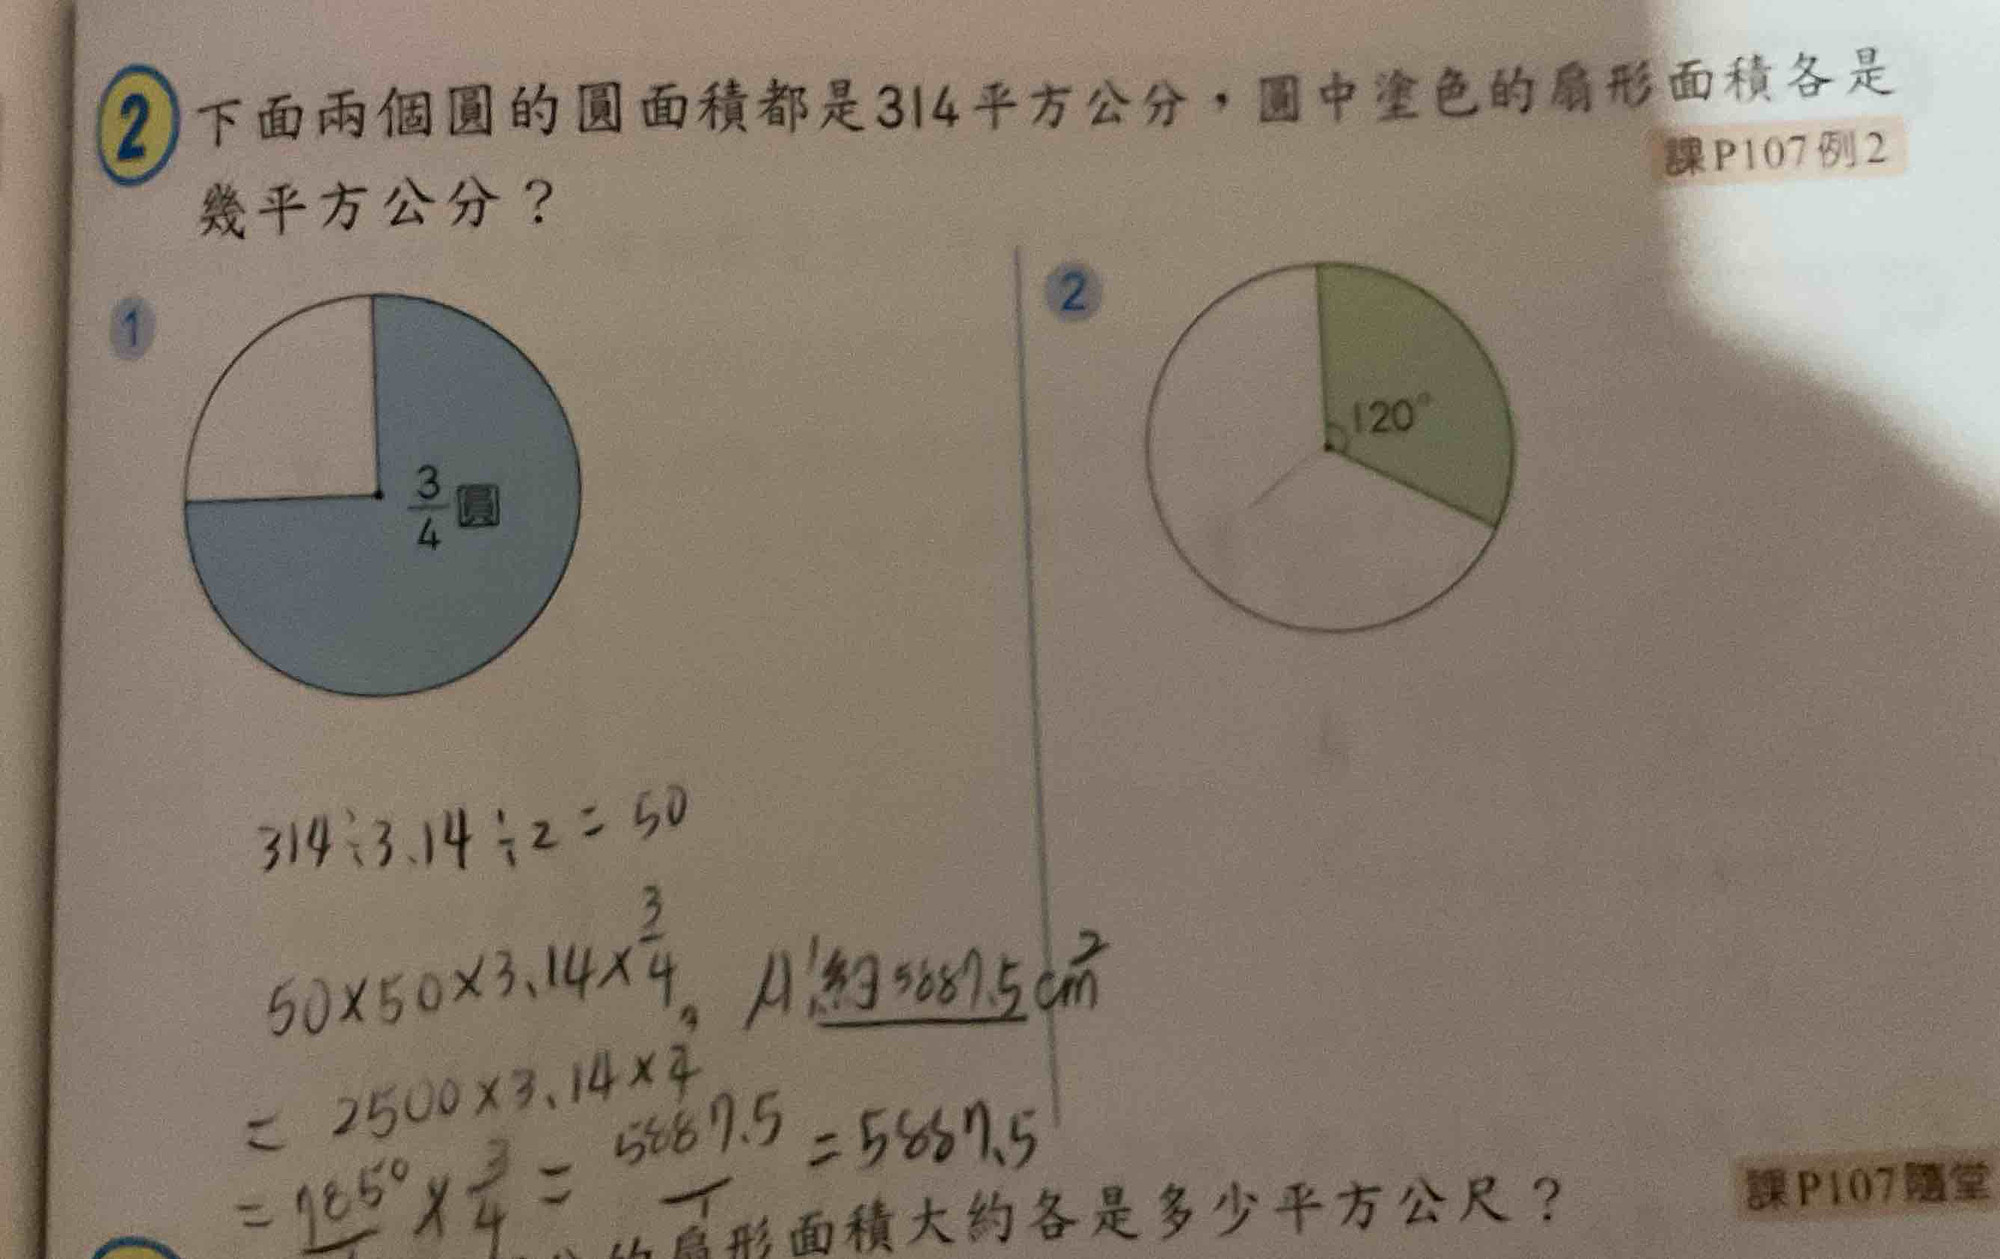 2 下面兩個圓的圓面積都是314平方公分，圓中塗色的扇形面積各是
課P107例2
幾平方公分？
1
3/4圓
2
120°
314÷3.14÷2=50
50×50×3.14×3/4
A:約5887.5cm²
=2500×3.14×3/4
=7850/1×3/4=5887.5/1=5887.5
扇形面積大約各是多少平方公尺？
課P107隨堂